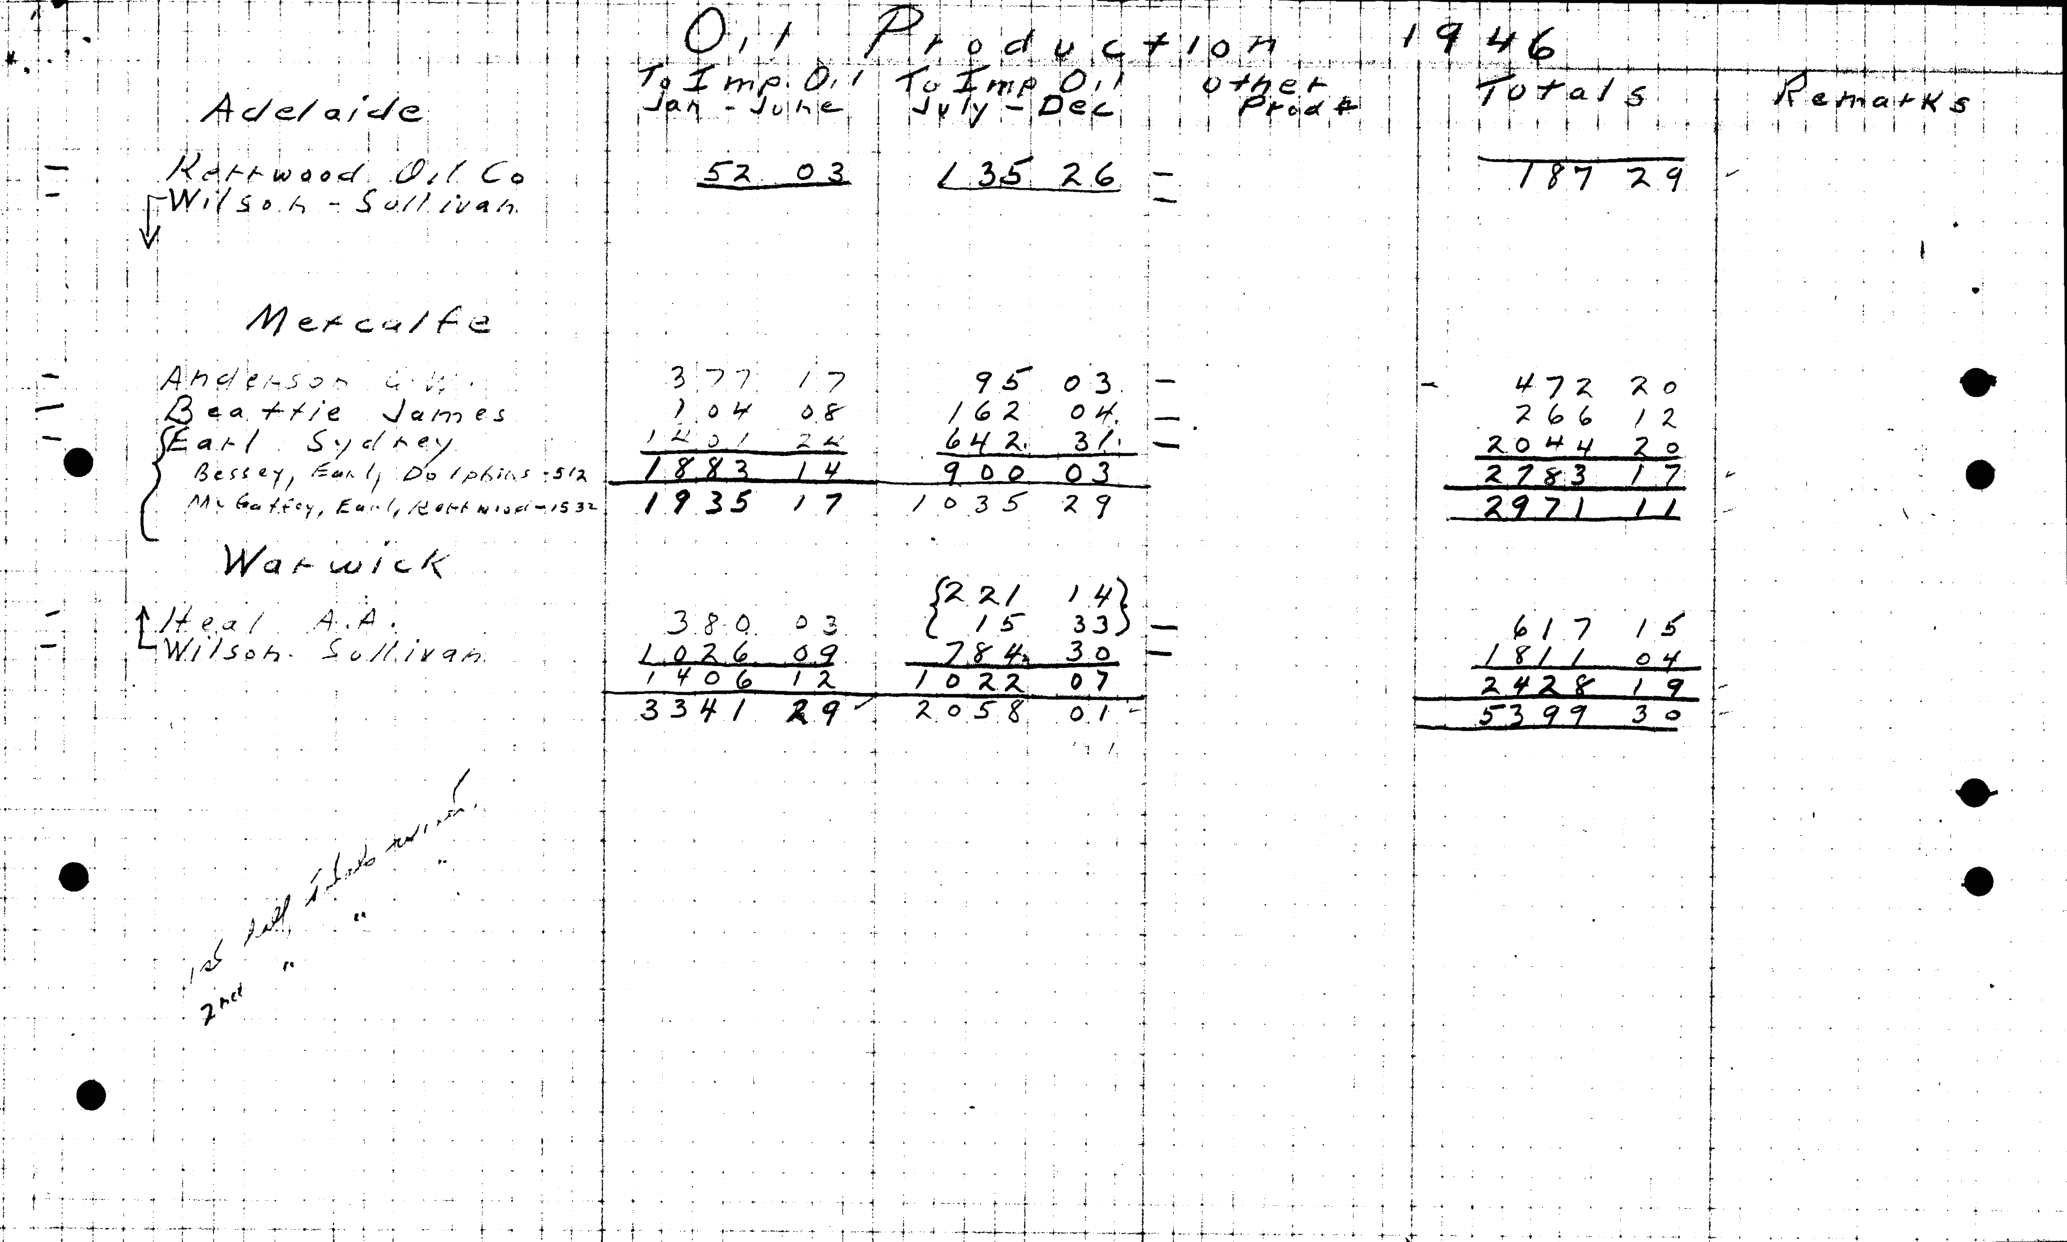 Oil Production 1946
To Imp. Oil To Imp Oil other Totals Remarks
Adelaide Jan - June July - Dec Prod
Kerrwood Oil Co 52 03 135 26 - 187 29
Wilson - Sullivan -
Metcalfe
Anderson G.W. 377 17 95 03 - - 472 20
Beattie James 104 08 162 04 - 266 12
Earl Sydney 1401 24 642 31 - 2044 20
Bessey, Earl, Dolphins - 512 1883 14 900 03 2783 17
McGaffey, Earl, Kerrwood - 1532 1935 17 1035 29 2971 11
Warwick
{221 14}
Heal A.A. 380 03 {15 33} - 617 15
Wilson Sullivan 1026 09 784 30 - 1811 04
1406 12 1022 07 2428 19
3341 29 2058 01 5399 30
1st half
2nd " " "